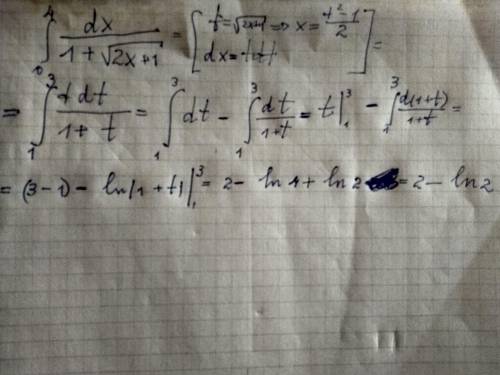 ∫₀⁴ dx/(1+√(2x+1)) = [t=√(2x+1) ⇒ x=(t²-1)/2
dx=tdt] =
= ∫₁³ tdt/(1+t) = ∫₁³ dt - ∫₁³ dt/(1+t) = t|₁³ - ∫₁³ d(1+t)/(1+t) =
= (3-1) - ln|1+t||₁³ = 2 - ln4 + ln2 = 2 - ln2